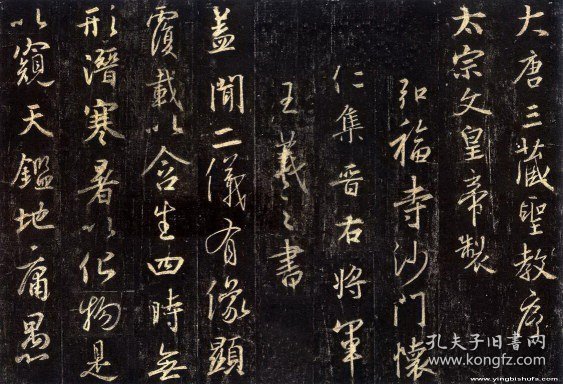 大唐三藏聖教序
太宗文皇帝製
弘福寺沙門懷
仁集晉右將軍
王羲之書
蓋聞二儀有像顯
覆載以含生四時無
形潛寒暑以化物是
以窺天鑑地庸愚
孔夫子旧书网
www.kongfz.com
www.yingbishufa.com